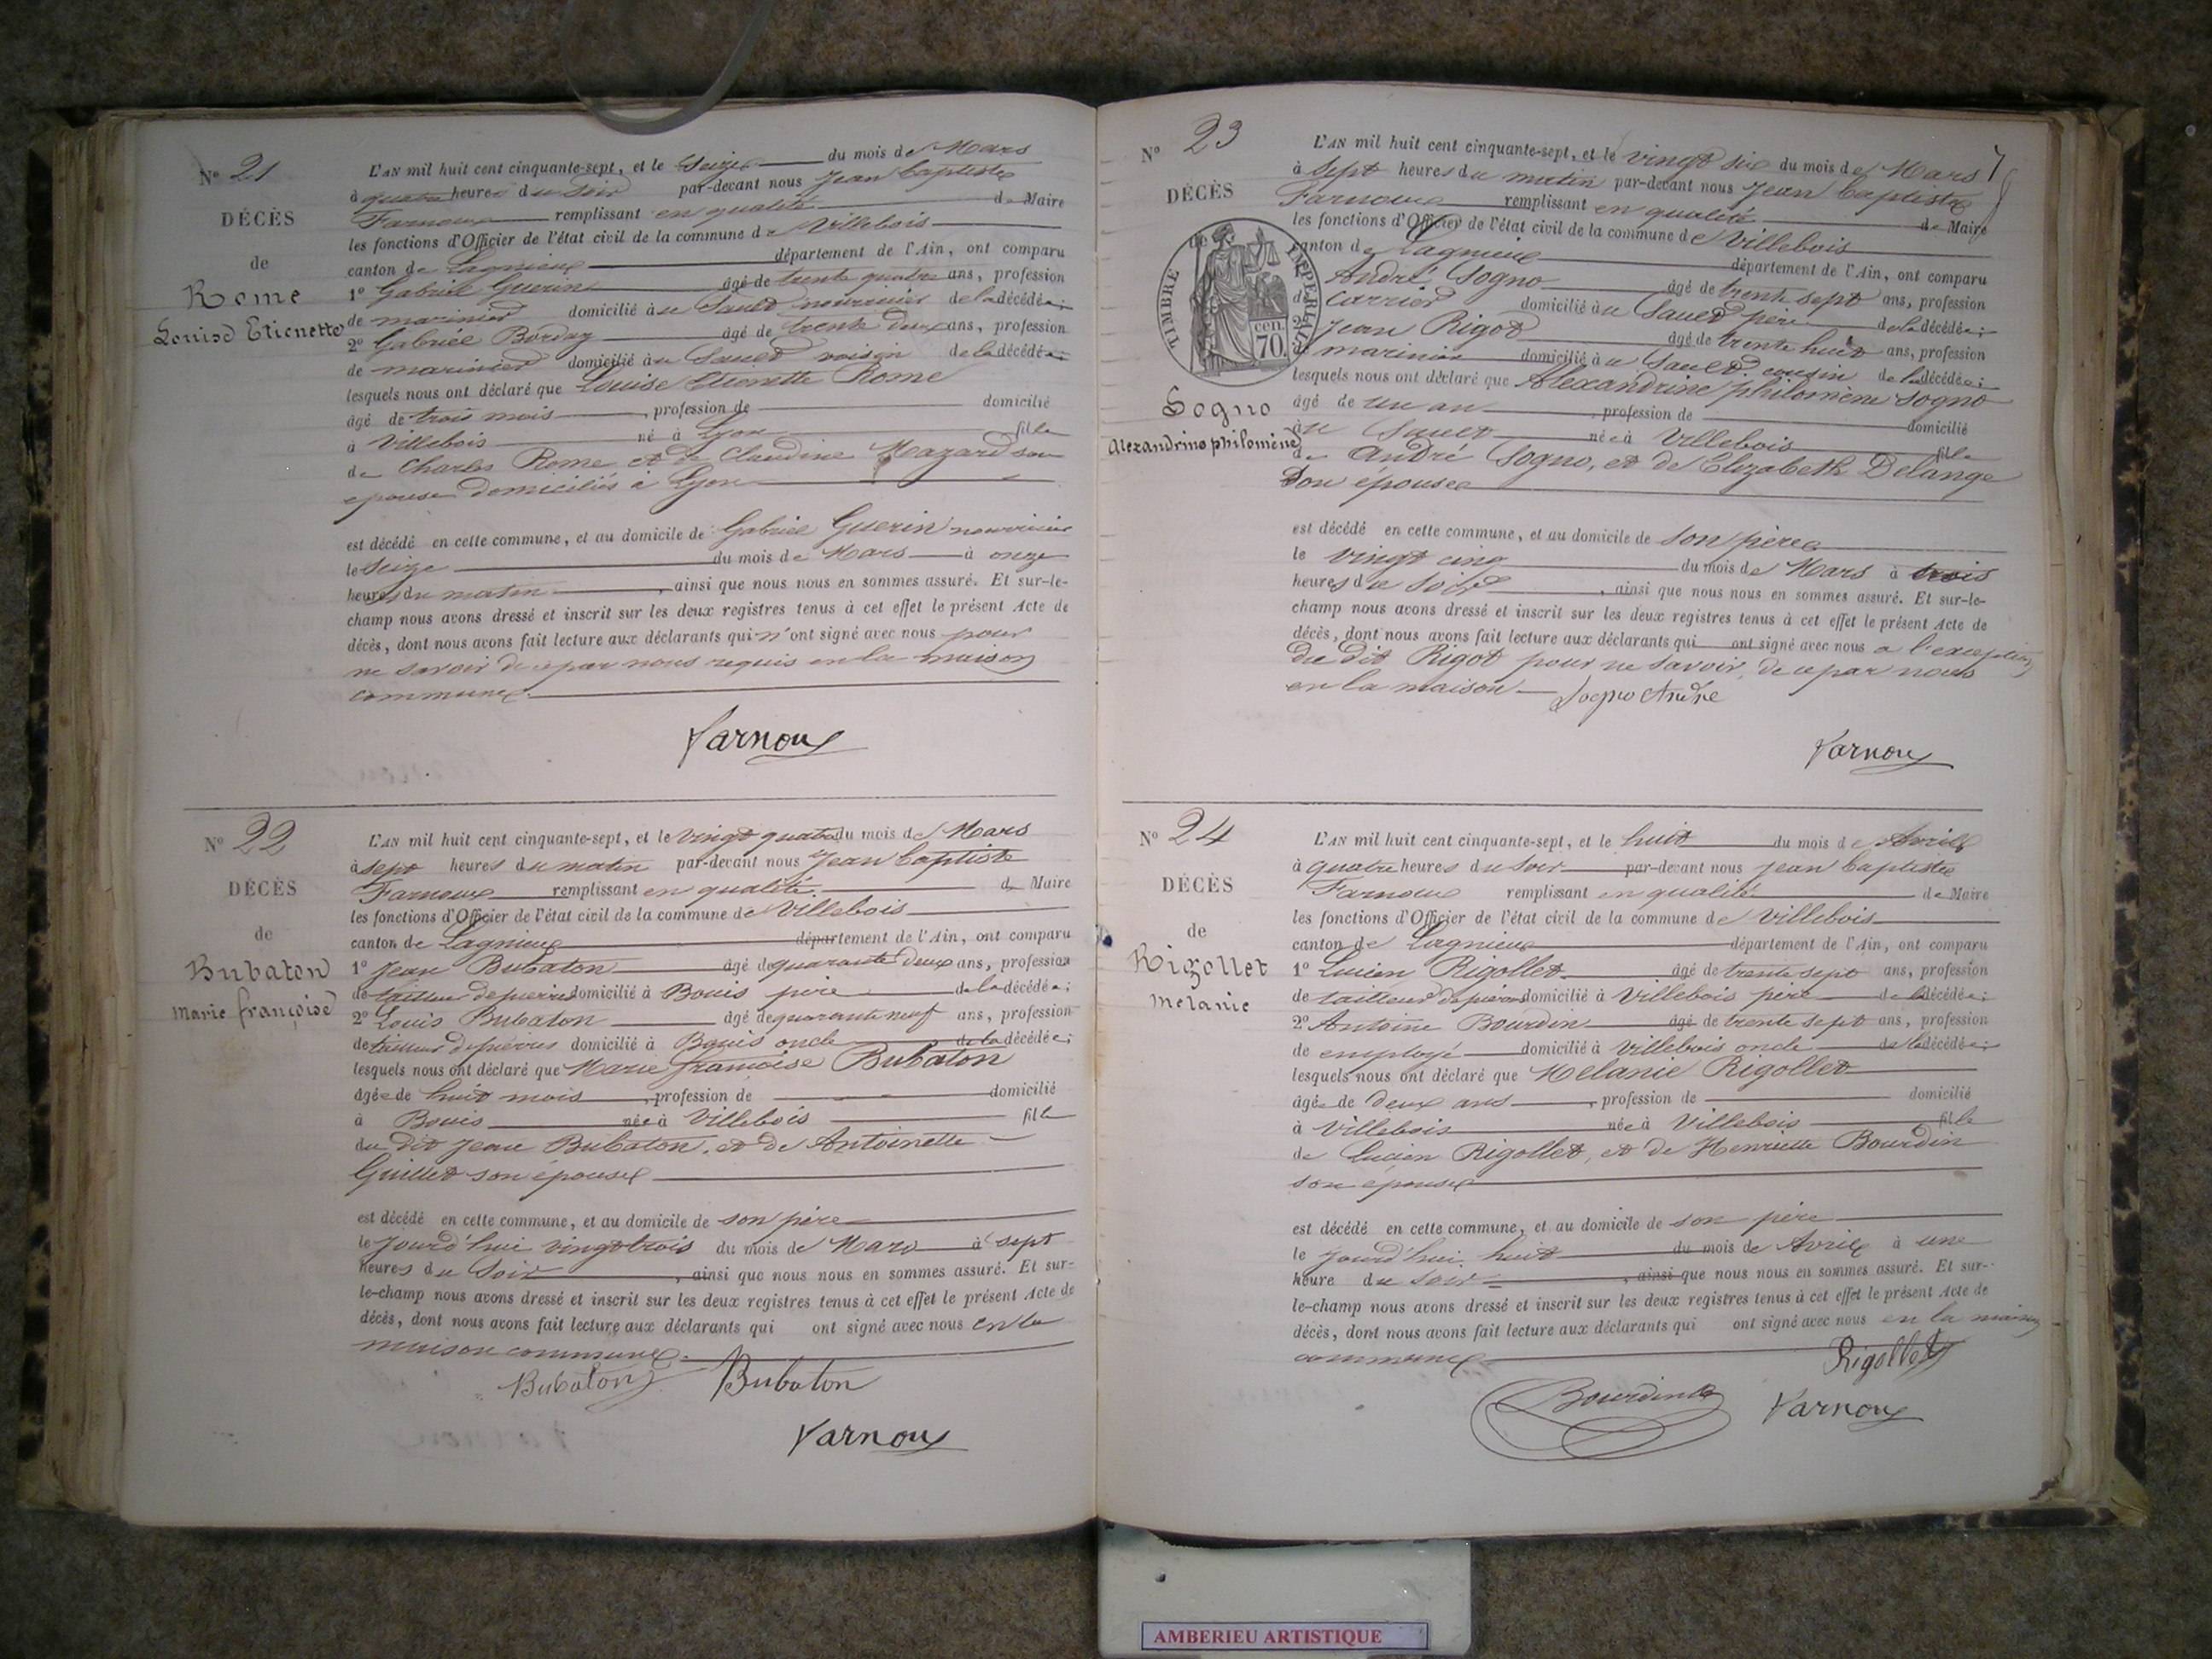 Nº 21
DÉCÈS
de
Rome
Louise Etienette
L'AN mil huit cent cinquante-sept, et le Seize du mois de Mars
à quatre heures du soir par-devant nous Jean Baptiste
Farnoux remplissant en qualité de Maire
les fonctions d'Officier de l'état civil de la commune de Villebois
canton de Lagnieux département de l'Ain, ont comparu
1º Gabriel Guerin âgé de trente quatre ans, profession
de marinier domicilié au Sault nourricier de la décédée;
2º Gabriél Borday âgé de trente deux ans, profession
de marinier domicilié au Sault voisin de la décédée;
lesquels nous ont déclaré que Louise Etienette Rome
âgé de trois mois, profession de domicilié
à Villebois né à Lyon fille
de Charles Rome et de Claudine Mazard son
epouse domiciliés à Lyon
est décédé en cette commune, et au domicile de Gabriel Guerin nourricier
le Seize du mois de Mars à onze
heures du matin, ainsi que nous nous en sommes assuré. Et sur-le-
champ nous avons dressé et inscrit sur les deux registres tenus à cet effet le présent Acte de
décès, dont nous avons fait lecture aux déclarants qui n'ont signé avec nous pour
ne savoir de ce par nous requis en la maison
commune
Farnoux
Nº 22
DÉCÈS
de
Bubaton
Marie françoise
L'AN mil huit cent cinquante-sept, et le vingt quatre du mois de Mars
à sept heures du matin par-devant nous Jean Baptiste
Farnoux remplissant en qualité de Maire
les fonctions d'Officier de l'état civil de la commune de Villebois
canton de Lagnieux département de l'Ain, ont comparu
1º Jean Bubaton âgé de quarante deux ans, profession
de tailleur de pierres domicilié à Bouis père de la décédée;
2º Louis Bubaton âgé de quarante neuf ans, profession
de tailleur de pierres domicilié à Bouis oncle de la décédée;
lesquels nous ont déclaré que Marie françoise Bubaton
âgée de huit mois, profession de domicilié
à Bouis née à Villebois fille
du dit Jean Bubaton, et de Antoinette
Guillet son épouse
est décédé en cette commune, et au domicile de son père
le jourd'hui vingt trois du mois de Mars à sept
heures du soir, ainsi que nous nous en sommes assuré. Et sur-
le-champ nous avons dressé et inscrit sur les deux registres tenus à cet effet le présent Acte de
décès, dont nous avons fait lecture aux déclarants qui ont signé avec nous en la
maison commune.
Bubaton Bubaton
Farnoux
Nº 23
DÉCÈS
de
TIMBRE IMPERIAL
70 cen.
Sogno
Alexandrine philomène
L'AN mil huit cent cinquante-sept, et le vingt six du mois de Mars
à Sept heures du matin par-devant nous Jean Baptiste
Farnoux remplissant en qualité de Maire
les fonctions d'Officier de l'état civil de la commune de Villebois
canton de Lagnieux département de l'Ain, ont comparu
André Sogno âgé de trente sept ans, profession
de carrier domicilié au Sault père de la décédée;
2º Jean Rigot âgé de trente huit ans, profession
de marinier domicilié au Sault cousin de la décédée;
lesquels nous ont déclaré que Alexandrine philomène Sogno
âgé de un an, profession de domicilié
au Sault née à Villebois fille
de André Sogno, et de Elizabeth Delange
Son épouse
est décédé en cette commune, et au domicile de son père
le vingt cinq du mois de Mars à trois
heures du soir, ainsi que nous nous en sommes assuré. Et sur-le-
champ nous avons dressé et inscrit sur les deux registres tenus à cet effet le présent Acte de
décès, dont nous avons fait lecture aux déclarants qui ont signé avec nous a l'exception
du dit Rigot pour ne savoir, de ce par nous
en la maison Sogno André
Farnoux
Nº 24
DÉCÈS
de
Rigollet
Melanie
L'AN mil huit cent cinquante-sept, et le huit du mois de Avril
à quatre heures du soir par-devant nous Jean Baptiste
Farnoux remplissant en qualité de Maire
les fonctions d'Officier de l'état civil de la commune de Villebois
canton de Lagnieux département de l'Ain, ont comparu
1º Lucien Rigollet âgé de trente sept ans, profession
de tailleur de pierres domicilié à Villebois père de la décédée;
2º Antoine Bourdin âgé de trente sept ans, profession
de employé domicilié à Villebois oncle de la décédée;
lesquels nous ont déclaré que Melanie Rigollet
âgée de deux ans, profession de domicilié
à Villebois née à Villebois fille
de Lucien Rigollet, et de Henriette Bourdin
son épouse
est décédé en cette commune, et au domicile de son père
le jourd'hui huit du mois de Avril à une
heure du soir, ainsi que nous nous en sommes assuré. Et sur-
le-champ nous avons dressé et inscrit sur les deux registres tenus à cet effet le présent Acte de
décès, dont nous avons fait lecture aux déclarants qui ont signé avec nous en la maison
commune
Rigollet
Bourdin Farnoux
AMBERIEU ARTISTIQUE